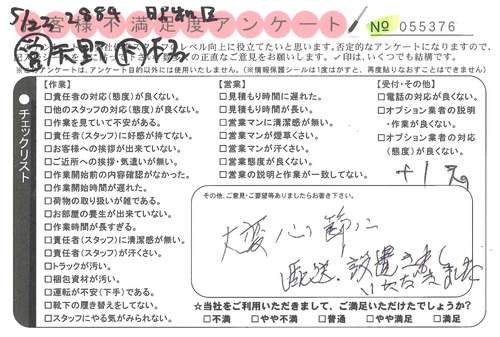 5/23 2884 昭和区
お客様不満足度アンケート
No 055376
営 矢野
レベル向上に役立てたいと思います。否定的なアンケートになりますので、
正直なご意見をお願いします。✓印は、いくつでも結構です。
アンケートは、アンケート目的以外には使用いたしません。(※情報保護シールは1度はがすと、再度貼りなおすことはできません)
チェックリスト
【作業】
□責任者の対応(態度)が良くない。
□他のスタッフの対応(態度)が良くない。
□作業を見ていて不安がある。
□責任者(スタッフ)に好感が持てない。
□お客様への挨拶が出来ていない。
□ご近所への挨拶・気遣いが無い。
□作業開始前の内容確認がなかった。
□作業開始時間が遅れた。
□荷物の取り扱いが雑である。
□お部屋の養生が出来ていない。
□作業時間が長すぎる。
□責任者(スタッフ)に清潔感が無い。
□責任者(スタッフ)が汗くさい。
□トラックが汚い。
□梱包資材が汚い。
□運転が不安(下手)である。
□靴下の履き替えをしてない。
□スタッフにやる気がみられない。
【営業】
□見積もり時間に遅れた。
□見積もり時間が長い。
□営業マンに清潔感が無い。
□営業マンが煙草くさい。
□営業マンが汗くさい。
□営業態度が良くない。
□営業の説明と作業が一致してない。
【受付・その他】
□電話の対応が良くない。
□オプション業者の説明
・作業が良くない。
□オプション業者の対応
(態度)が良くない。
その他、ご意見・ご要望等ありましたらお書き下さい。
大変
配送、設置
いただきました
☆当社をご利用いただきまして、ご満足いただけたでしょうか?
□不満 □やや不満 □普通 □やや満足 □満足